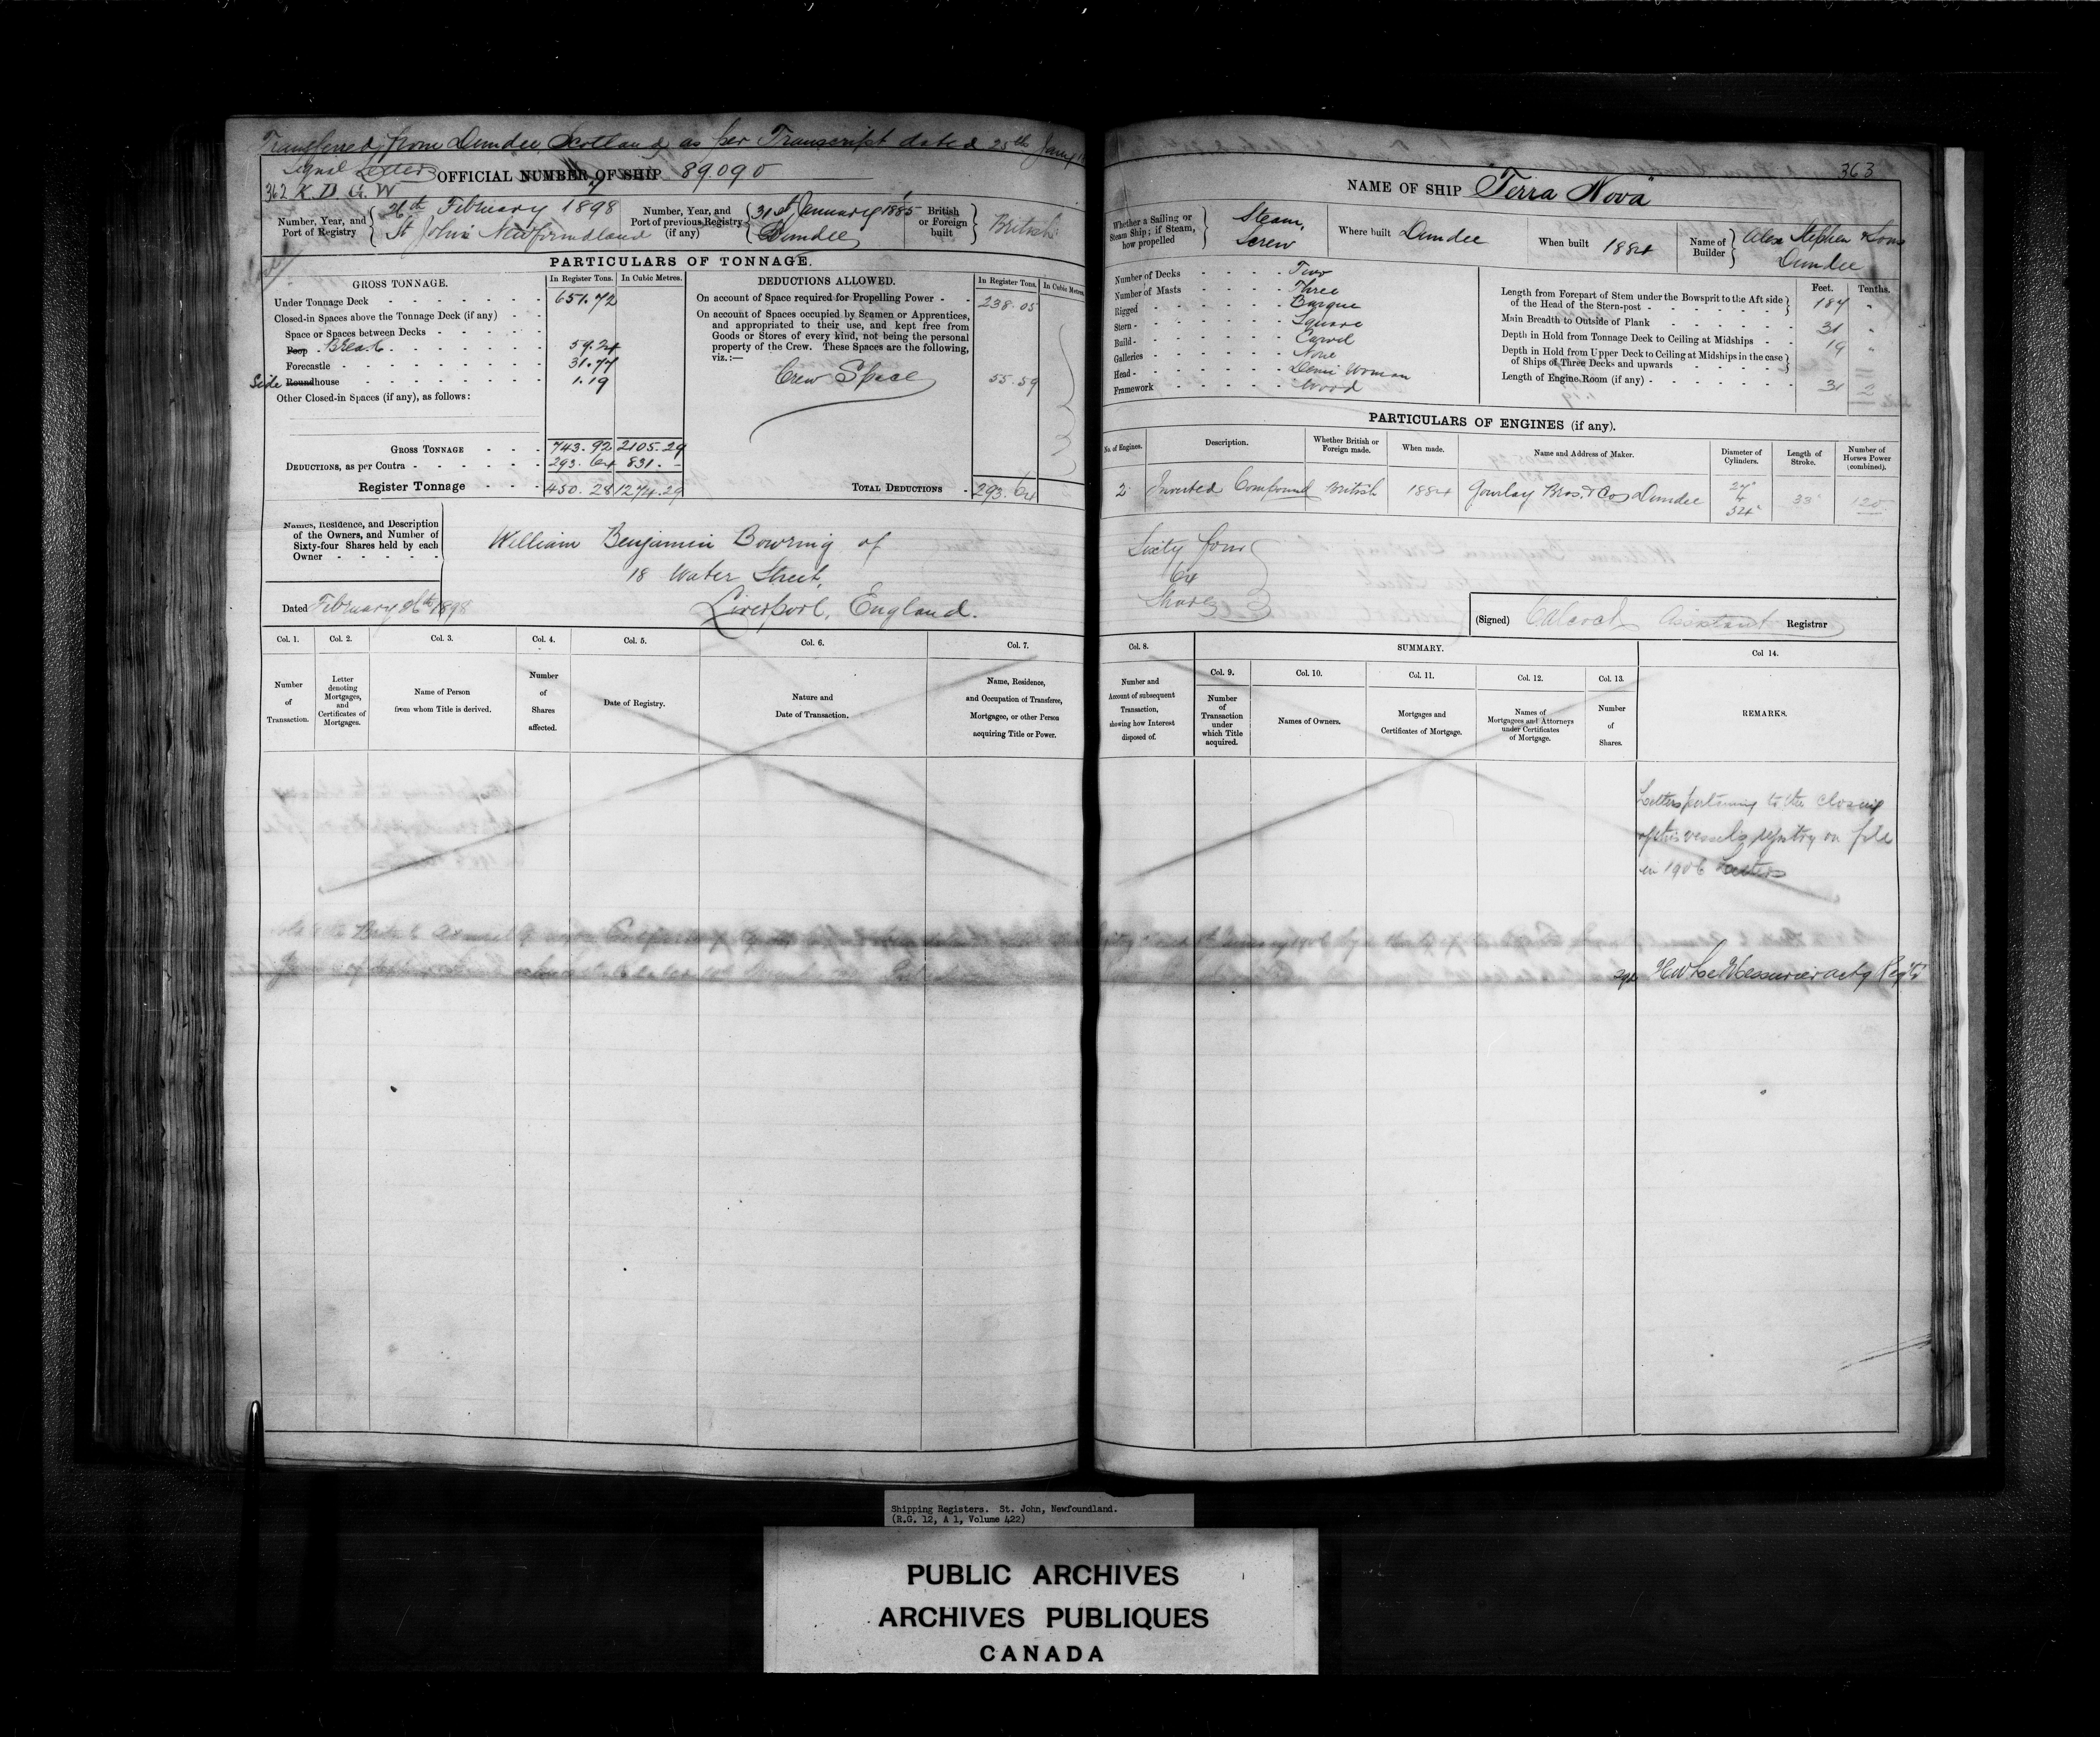 Transferred from Dundee Scotland, as per Transcript dated 25th Jany
Signal Letters
362 K. D. G. W
OFFICIAL NUMBER OF SHIP 89090
Number, Year, and Port of Registry 26th February 1898 St John's Newfoundland
Number, Year, and Port of previous Registry (if any) 31st January 1885 Dundee
British or Foreign built British
PARTICULARS OF TONNAGE.
GROSS TONNAGE. In Register Tons. In Cubic Metres.
Under Tonnage Deck 651.72
Closed-in Spaces above the Tonnage Deck (if any)
Space or Spaces between Decks
Poop Break 59.24
Forecastle 31.77
Side Roundhouse 1.19
Other Closed-in Spaces (if any), as follows:
GROSS TONNAGE 743.92 2105.29
DEDUCTIONS, as per Contra 293.64 831.-
Register Tonnage 450.28 1274.29
DEDUCTIONS ALLOWED. In Register Tons. In Cubic Metres.
On account of Space required for Propelling Power 238.05
On account of Spaces occupied by Seamen or Apprentices,
and appropriated to their use, and kept free from
Goods or Stores of every kind, not being the personal
property of the Crew. These Spaces are the following,
viz.:—
Crew Space 55.59
TOTAL DEDUCTIONS 293.64
Names, Residence, and Description
of the Owners, and Number of
Sixty-four Shares held by each
Owner
William Benjamin Bowring of
18 Water Street,
Liverpool, England.
Dated February 26th 1898
Col. 1. Col. 2. Col. 3. Col. 4. Col. 5. Col. 6. Col. 7.
Number of Transaction.
Letter denoting Mortgages, and Certificates of Mortgages.
Name of Person from whom Title is derived.
Number of Shares affected.
Date of Registry.
Nature and Date of Transaction.
Name, Residence, and Occupation of Transferee, Mortgagee, or other Person acquiring Title or Power.
363
NAME OF SHIP "Terra Nova"
Whether a Sailing or Steam Ship; if Steam, how propelled Steam, Screw
Where built Dundee
When built 1884
Name of Builder Alex Stephen & Sons Dundee
Number of Decks Two
Number of Masts Three
Rigged Barque
Stern Square
Build Carvel
Galleries None
Head Demi Woman
Framework Wood
Feet. Tenths.
Length from Forepart of Stem under the Bowsprit to the Aft side of the Head of the Stern-post 187 "
Main Breadth to Outside of Plank 31 "
Depth in Hold from Tonnage Deck to Ceiling at Midships 19 "
Depth in Hold from Upper Deck to Ceiling at Midships in the case of Ships of Three Decks and upwards
Length of Engine Room (if any) 31 2
PARTICULARS OF ENGINES (if any).
No. of Engines. Description. Whether British or Foreign made. When made. Name and Address of Maker. Diameter of Cylinders. Length of Stroke. Number of Horses Power (combined).
2 Inverted Compound British 1884 Gourlay Bros. & Co Dundee 27" & 54" 33" 120
Sixty four
64
Shares
(Signed) Calcock Assistant Registrar
Col. 8. SUMMARY. Col 14.
Col. 9. Col. 10. Col. 11. Col. 12. Col. 13.
Number and Amount of subsequent Transaction, showing how Interest disposed of.
Number of Transaction under which Title acquired.
Names of Owners.
Mortgages and Certificates of Mortgage.
Names of Mortgagees and Attorneys under Certificates of Mortgage.
Number of Shares.
REMARKS.
Letters pertaining to the closing
of this vessels registry on file
in 1906 Letters
sgd H W LeMessurier actg Regtr
Shipping Registers. St. John, Newfoundland.
(R.G. 12, A 1, Volume 422)
PUBLIC ARCHIVES
ARCHIVES PUBLIQUES
CANADA